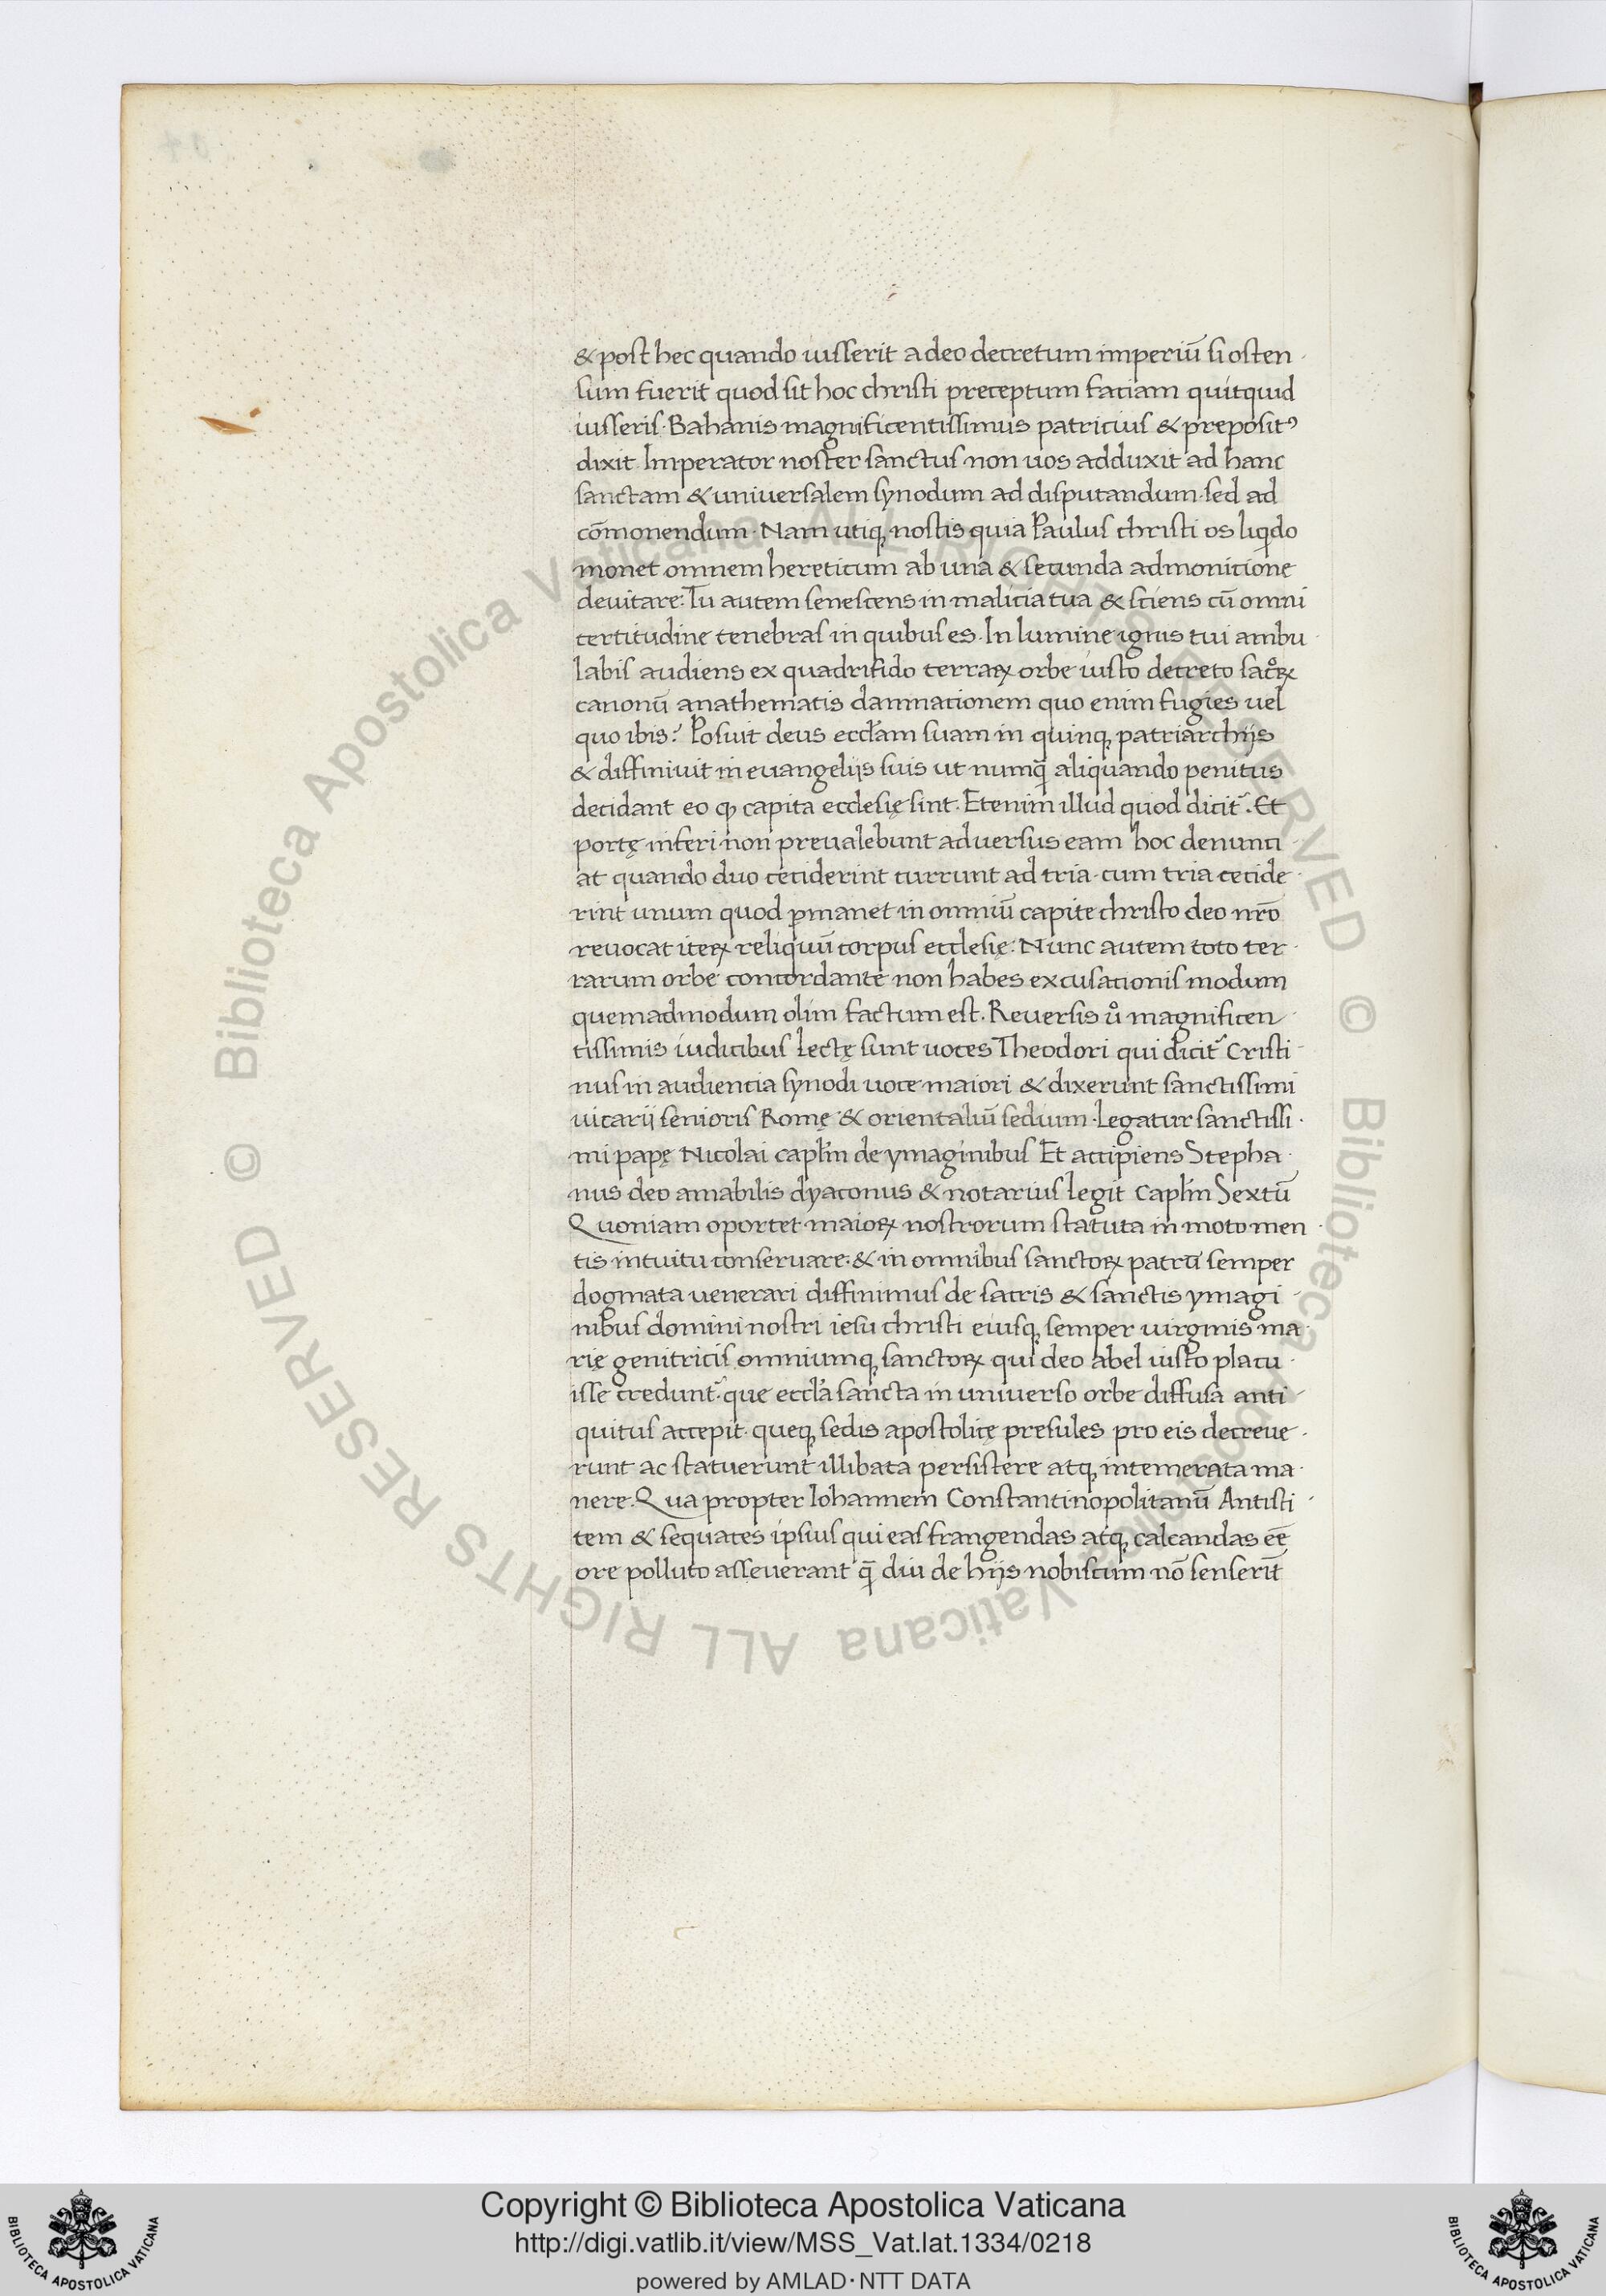 & post hec quando iusserit a deo decretum imperiū si osten ·
sum fuerit quod sit hoc christi preceptum faciam quitquid
iusseris · Bahanis magnificentissimus patricius & preposit⁹
dixit Imperator noster sanctus non uos adduxit ad hanc
sanctam & universalem synodum ad disputandum · sed ad
cōmonendum · Nam utiq; nostis quia Paulus christi os liq̇do
monet omnem hereticum ab una & secunda admonicione
devitare : Tu autem senescens in malicia tua & sciens cū omni
certitudine tenebras in quibus es . In lumine ignis tui ambu ·
labis audiens ex quadrifido terraꝝ orbe iusto decreto sacͦꝝ
canonū anathematis damnationem quo enim fugies vel
quo ibis ? Posuit deus eccl̄am suam in quinq; patriarchijs
& diffinivit in evangelijs suis ut numq̄ aliquando penitus
decidant eo ꝙ capita ecclesię sint . Etenim illud quod dicit̃ . Et
portę inferi non prevalebunt adversus eam hoc denunti ·
at quando duo ceciderint currunt ad tria · cum tria cecide ·
rint unum quod ꝑmanet in omniū capite christo deo nr̄o
revocat iteꝝ reliquū corpus ecclesię : Nunc autem toto ter ·
rarum orbe concordante non habes excusationis modum
quemadmodum olim factum est . Reversis uͦ magnificen ·
tissimis iudicibus Lectę sunt voces Theodori qui dicit̃ Cristi ·
nus in audientia synodi voce maiori & dixerunt sanctissimi
vicarij senioris Romę & orientaliū sedium · Legatur sanctissi ·
mi papę Nicolai capl̄m de ymaginibus Et accipiens Stepha ·
nus deo amabilis dyaconus & notarius legit Capl̄m Sextū
Quoniam oportet maioꝝ nostrorum statuta in moto men ·
tis intuitu conservare · & in omnibus sanctoꝝ patrū semper
dogmata venerari diffinimus de sacris & sanctis ymagi ·
nibus domini nostri iesu christi eiusq; semper virginis ma ·
rię genitricis omniumq; sanctoꝝ qui deo abel iusto placu ·
isse credunt̃ · que eccl̄a sancta in universo orbe diffusa anti ·
quitus accepit · queq; sedis apostolicę presules pro eis decreue ·
runt ac statuerunt illibata persistere atq; intemerata ma ·
nere . Qua propter Iohannem Constantinopolitanū Antisti ·
tem & sequaces ipsius qui eas frangendas atq; calcandas eē
ore polluto asseverant q̄ diu de hijs nobiscum nō senserīt
© Biblioteca Apostolica Vaticana ALL RIGHTS RESERVED © Biblioteca Apostolica Vaticana ALL RIGHTS RESERVED
Copyright © Biblioteca Apostolica Vaticana
http://digi.vatlib.it/view/MSS_Vat.lat.1334/0218
powered by AMLAD·NTT DATA
BIBLIOTECA APOSTOLICA VATICANA
BIBLIOTECA APOSTOLICA VATICANA